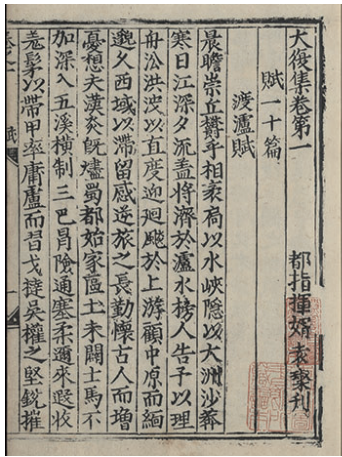 大復集卷第一
都指揮婿袁璨刊
賦一十篇
渡瀘賦
晨瞻崇丘欝乎相衮扃以水峽隱以大洲沙莽
寒日江深夕流盖將濟於瀘水榜人告予以理
舟汎洪波以直度迎廻飈於上游顧中原而緬
邈久西域以滯留感逆旅之長勤懷古人而増
憂想夫漢炎既燼蜀都始家區土未闢士馬不
加深入五溪橫制三巴冐險通塞柔邇來遐收
羌髳以帶甲率庸盧而荷戈挫吳權之堅銳摧